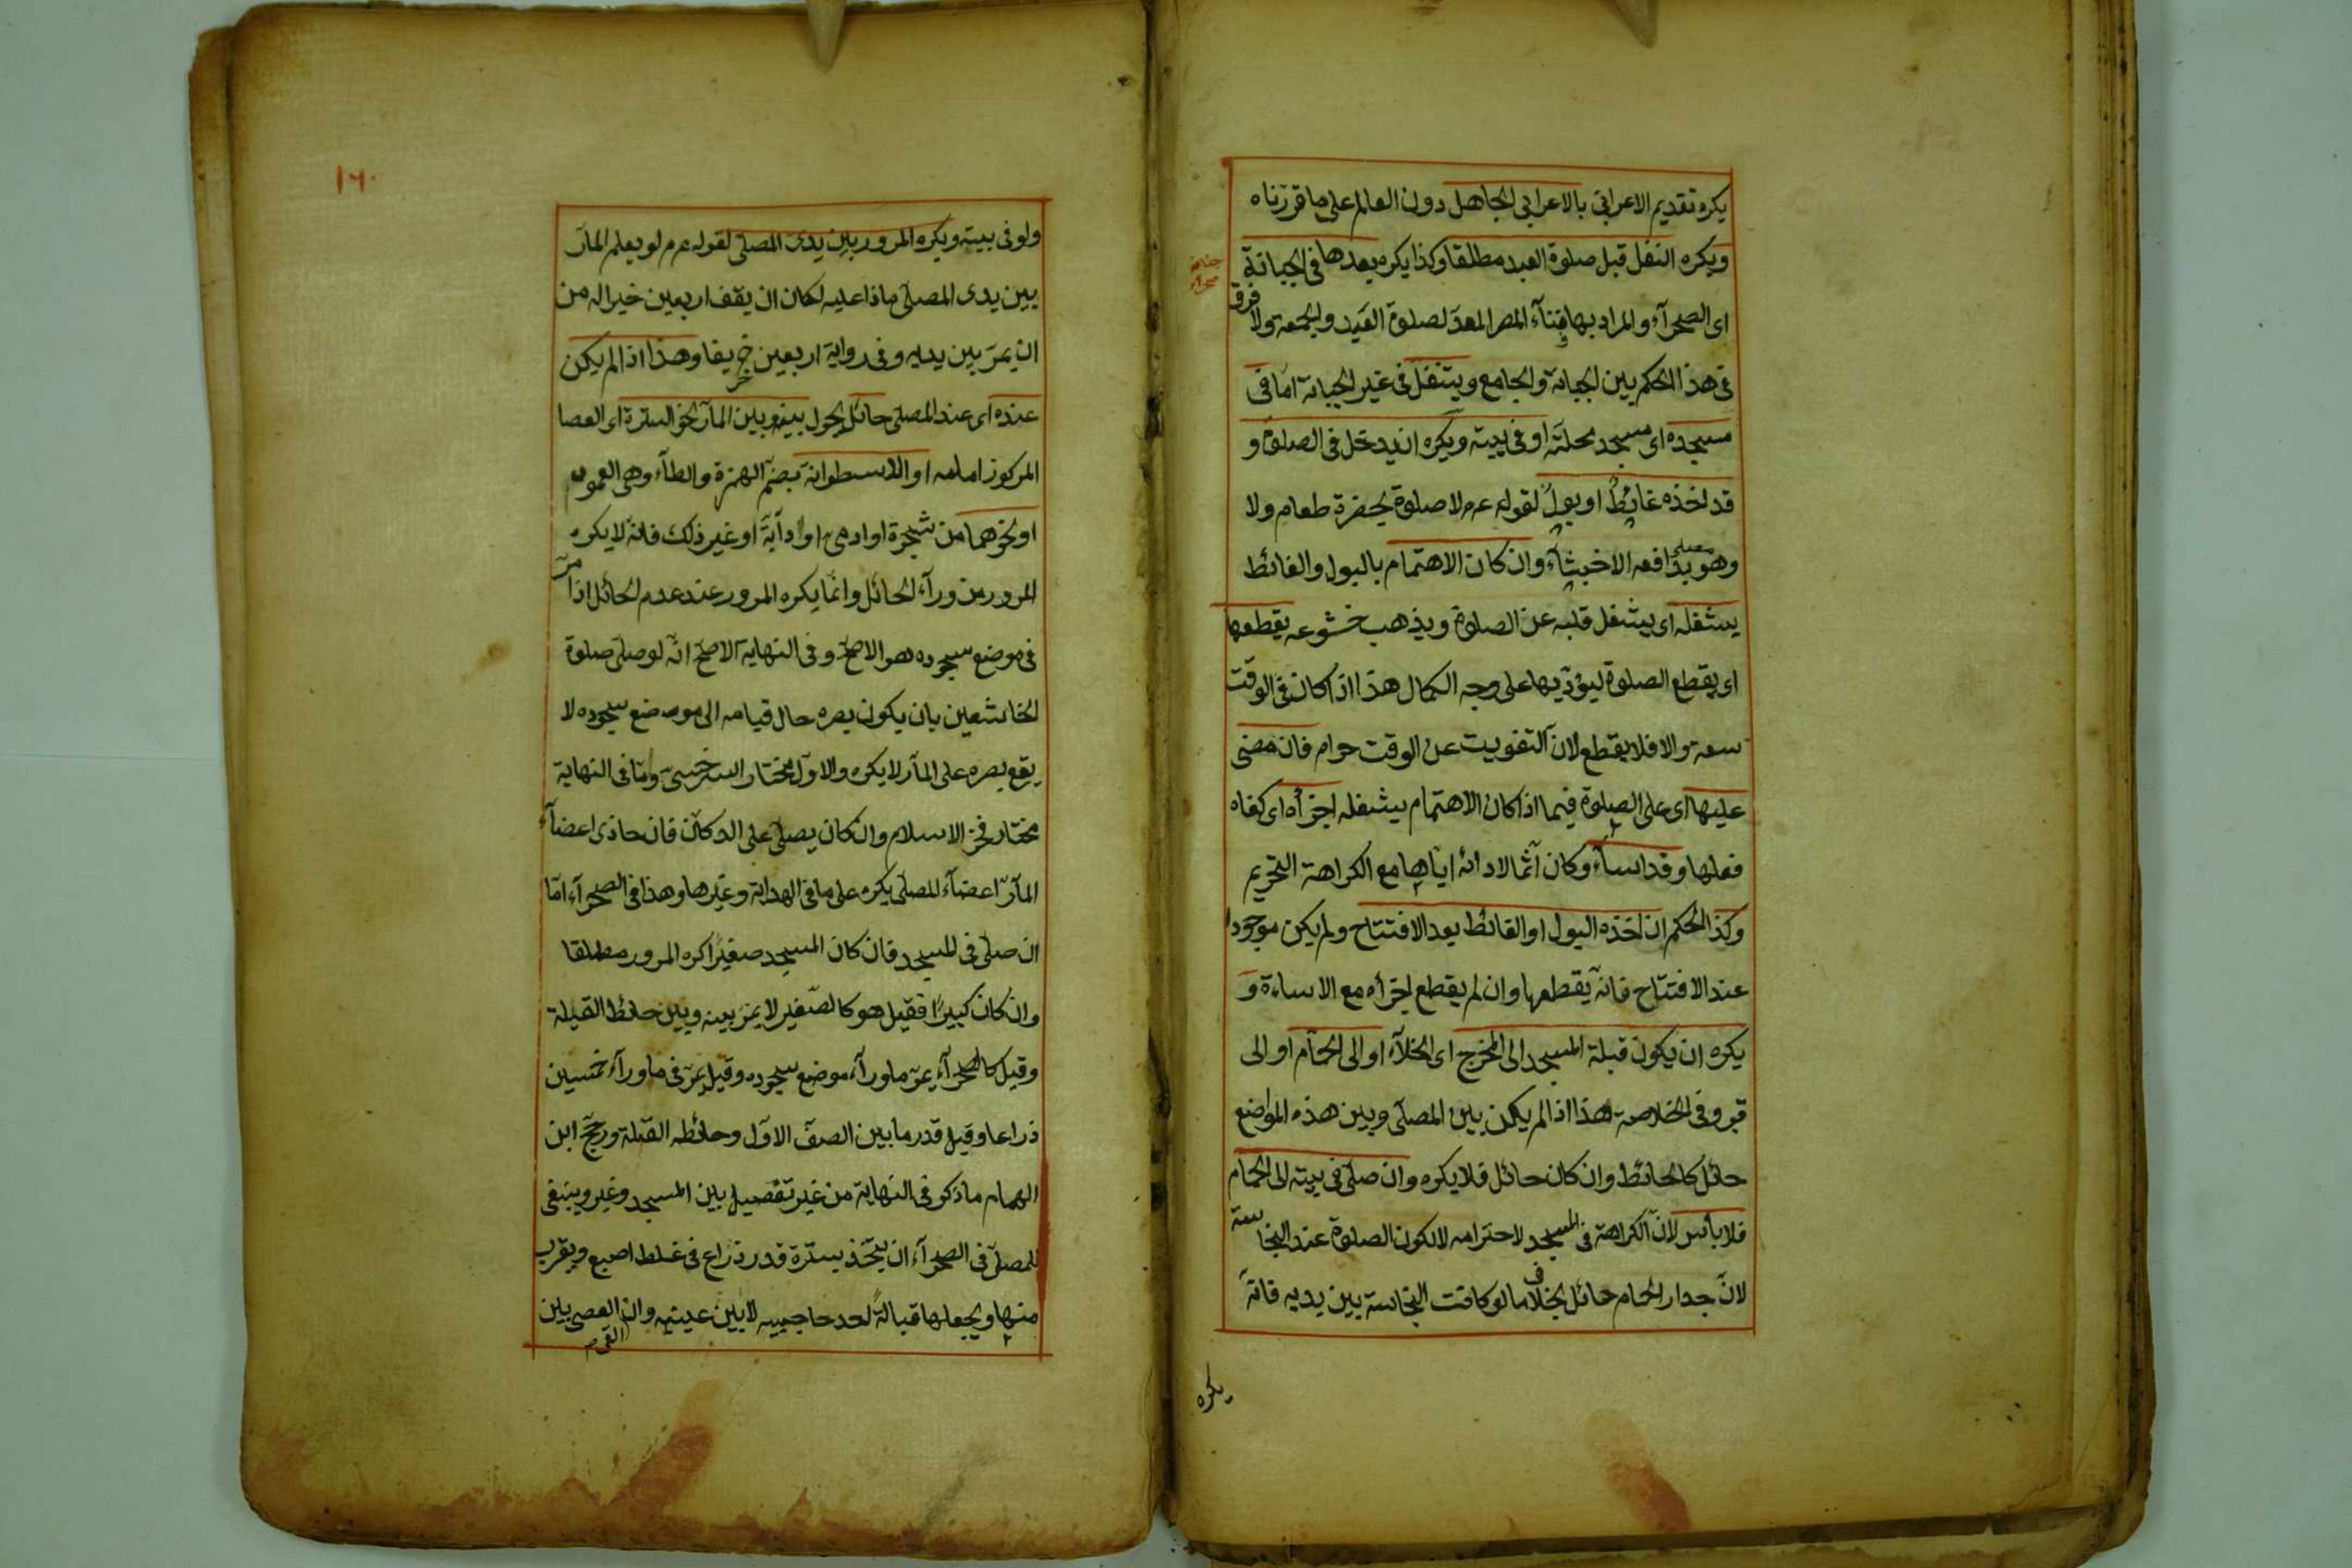 يكره تقديم الاعرابى بالاعرابى الجاهل دون العالم على ما قررناه
ويكره النفل قبل صلوة العيد مطلقا وكذا يكره بعدها فى الجبانة
اى الصحرآء والمراد بها فنآء المصر المعدّ لصلوة العيد والجمعة ولا فرق
فى هذا الحكم بين الجبانة والجامع ويتنفل فى غير الجبانة امّا فى
مسجده اى مسجد محلته او فى بيته ويكره ان يدخل فى الصلوة و
قد اخذه غائطٌ او بولٌ لقوله عم لا صلوة بحضرة طعام ولا
وهو يدافعه الاخبثان وان كان الاهتمام بالبول والغائط
يشغله اى يشغل قلبه عن الصلوة ويذهب خشوعه يقطعها
اى يقطع الصلوة ليؤديها على وجه الكمال هذا اذا كان فى الوقت
سعة والا فلا يقطع لانّ التفويت عن الوقت حرام فان مضى
عليها اى على الصلوة فيما اذا كان الاهتمام يشغله اجزأه اى كفاه
فعلها وقد اسآء وكان آثما لادائه ايّاها مع الكراهة التحريم
وكذا الحكم ان اخذه البول او الغائط بعد الافتتاح ولم يكن موجودا
عند الافتتاح فانّه يقطعها وان لم يقطع اجزأه مع الاساءة و
يكره ان يكون قبلة المسجد الى المخرج اى الخلآء او الى الحمّام او الى
قبر وفى الخلاصة هذا اذا لم يكن بين المصلّى وبين هذه المواضع
حائل كالحائط وان كان حائل فلا يكره وان صلّى فى بيته الى الحمام
فلا بأس لانّ الكراهة فى المسجد لاحترامه لا لكون الصلوة عند النجاسة
لانّ جدار الحمام حائل بخلاف ما لو كانت النجاسة بين يديه فانّه
يكره
١٦٠
ولو فى بيته ويكره المرور بين يدى المصلّى لقوله عم لو يعلم المآرّ
بين يدى المصلّى ماذا عليه لكان ان يقف اربعين خيرا له من
ان يمرّ بين يديه وفى رواية اربعين خريفا وهذا اذا لم يكن
عنده اى عند المصلى حائل يحول بينه وبين المآرّ نحو السترة اى العصا
المركوز امامه او الاسطوانة بضمّ الهمزة والطآء وهى العمود
او نحوهما من شجرة او ادمى او دآبّة او غير ذلك فانّه لا يكره
المرور من ورآء الحائل وانّما يكره المرور عند عدم الحائل اذا مرّ
فى موضع سجوده هو الاصحّ وفى النهاية الاصحّ انّه لو صلّى صلوة
الخاشعين بان يكون بصره حال قيامه الى موضع سجوده لا
يقع بصره على المآرّ لا يكره والاوّل مختار السرخسىّ وما فى النهاية
مختار فخر الاسلام وان كان يصلّى على الدكان فان حاذى اعضآء
المآرّ اعضآء المصلّى يكره على ما فى الهداية وغيرها وهذا فى الصحرآء امّا
ان صلّى فى المسجد فان كان المسجد صغيرًا كره المرور مطلقا
وان كان كبيرًا فقيل هو كالصّغير لا يمرّ بينه وبين حائط القبلة
وقيل كالصحرآء يمرّ ما ورآء موضع سجوده وقيل يمرّ فى ما ورآء خمسين
ذراعا وقيل قدر ما بين الصفّ الاوّل وحائطه القبلة ورجّح ابن
الهمام ما ذكر فى النهاية من غير تفصيل بين المسجد وغيره وينبغى
للمصلّى فى الصحرآء ان يتّخذ سترة قدر ذراع فى غلظ اصبع ويقرب
منها ويجعلها قبالة احد حاجبيه لا بين عينيه وان العصى بين